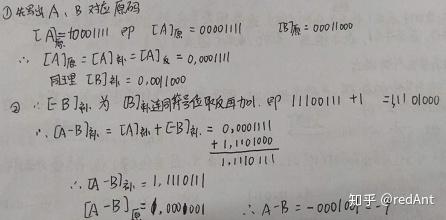 ①先写出A、B对应原码
[A]原=+0001111 即 [A]原=00001111 [B]原=00011000
∴ [A]原=[A]补=[A]反=0,0001111
同理 [B]补=0,0011000
② ∵ [-B]补 为 [B]补连同符号位取反再加1, 即 11100111 +1 =1,1101000
∴ [A-B]补 = [A]补+[-B]补 = 0,0001111
+ 1,1101000
1,1110111
∴ [A-B]补 = 1,1110111
[A-B]原 = 1,0001001 ∴ A-B = -0001001 = -9
知乎 @redAnt